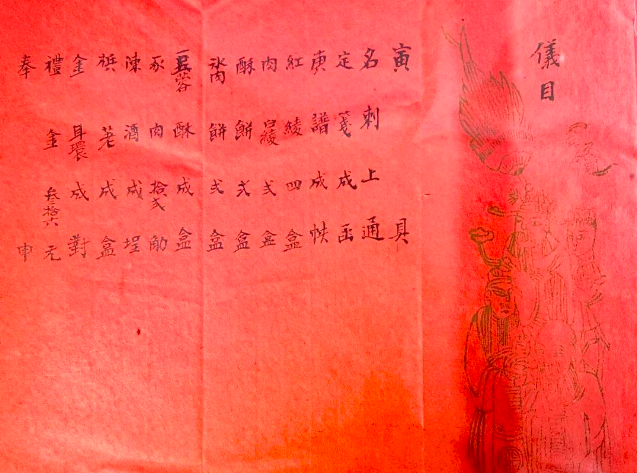 儀目
寅具
名刺上通
定箋成函
庚譜成帙
紅綾四盒
肉白綾弍盒
酥餅弍盒
氷肉餅弍盒
豆蓉酥成盒
豕肉拾弍觔
陳酒成埕
檳荖成盒
金耳環成對
禮金叁拾六元
奉申